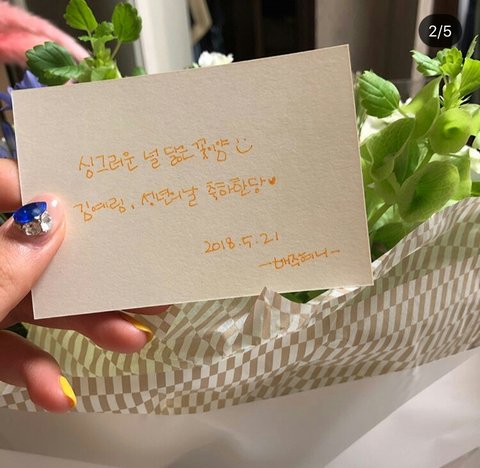 2/5
싱그러운 널 닮은 꽃이양
김예림, 성년의날 축하한당♥
2018.5.21